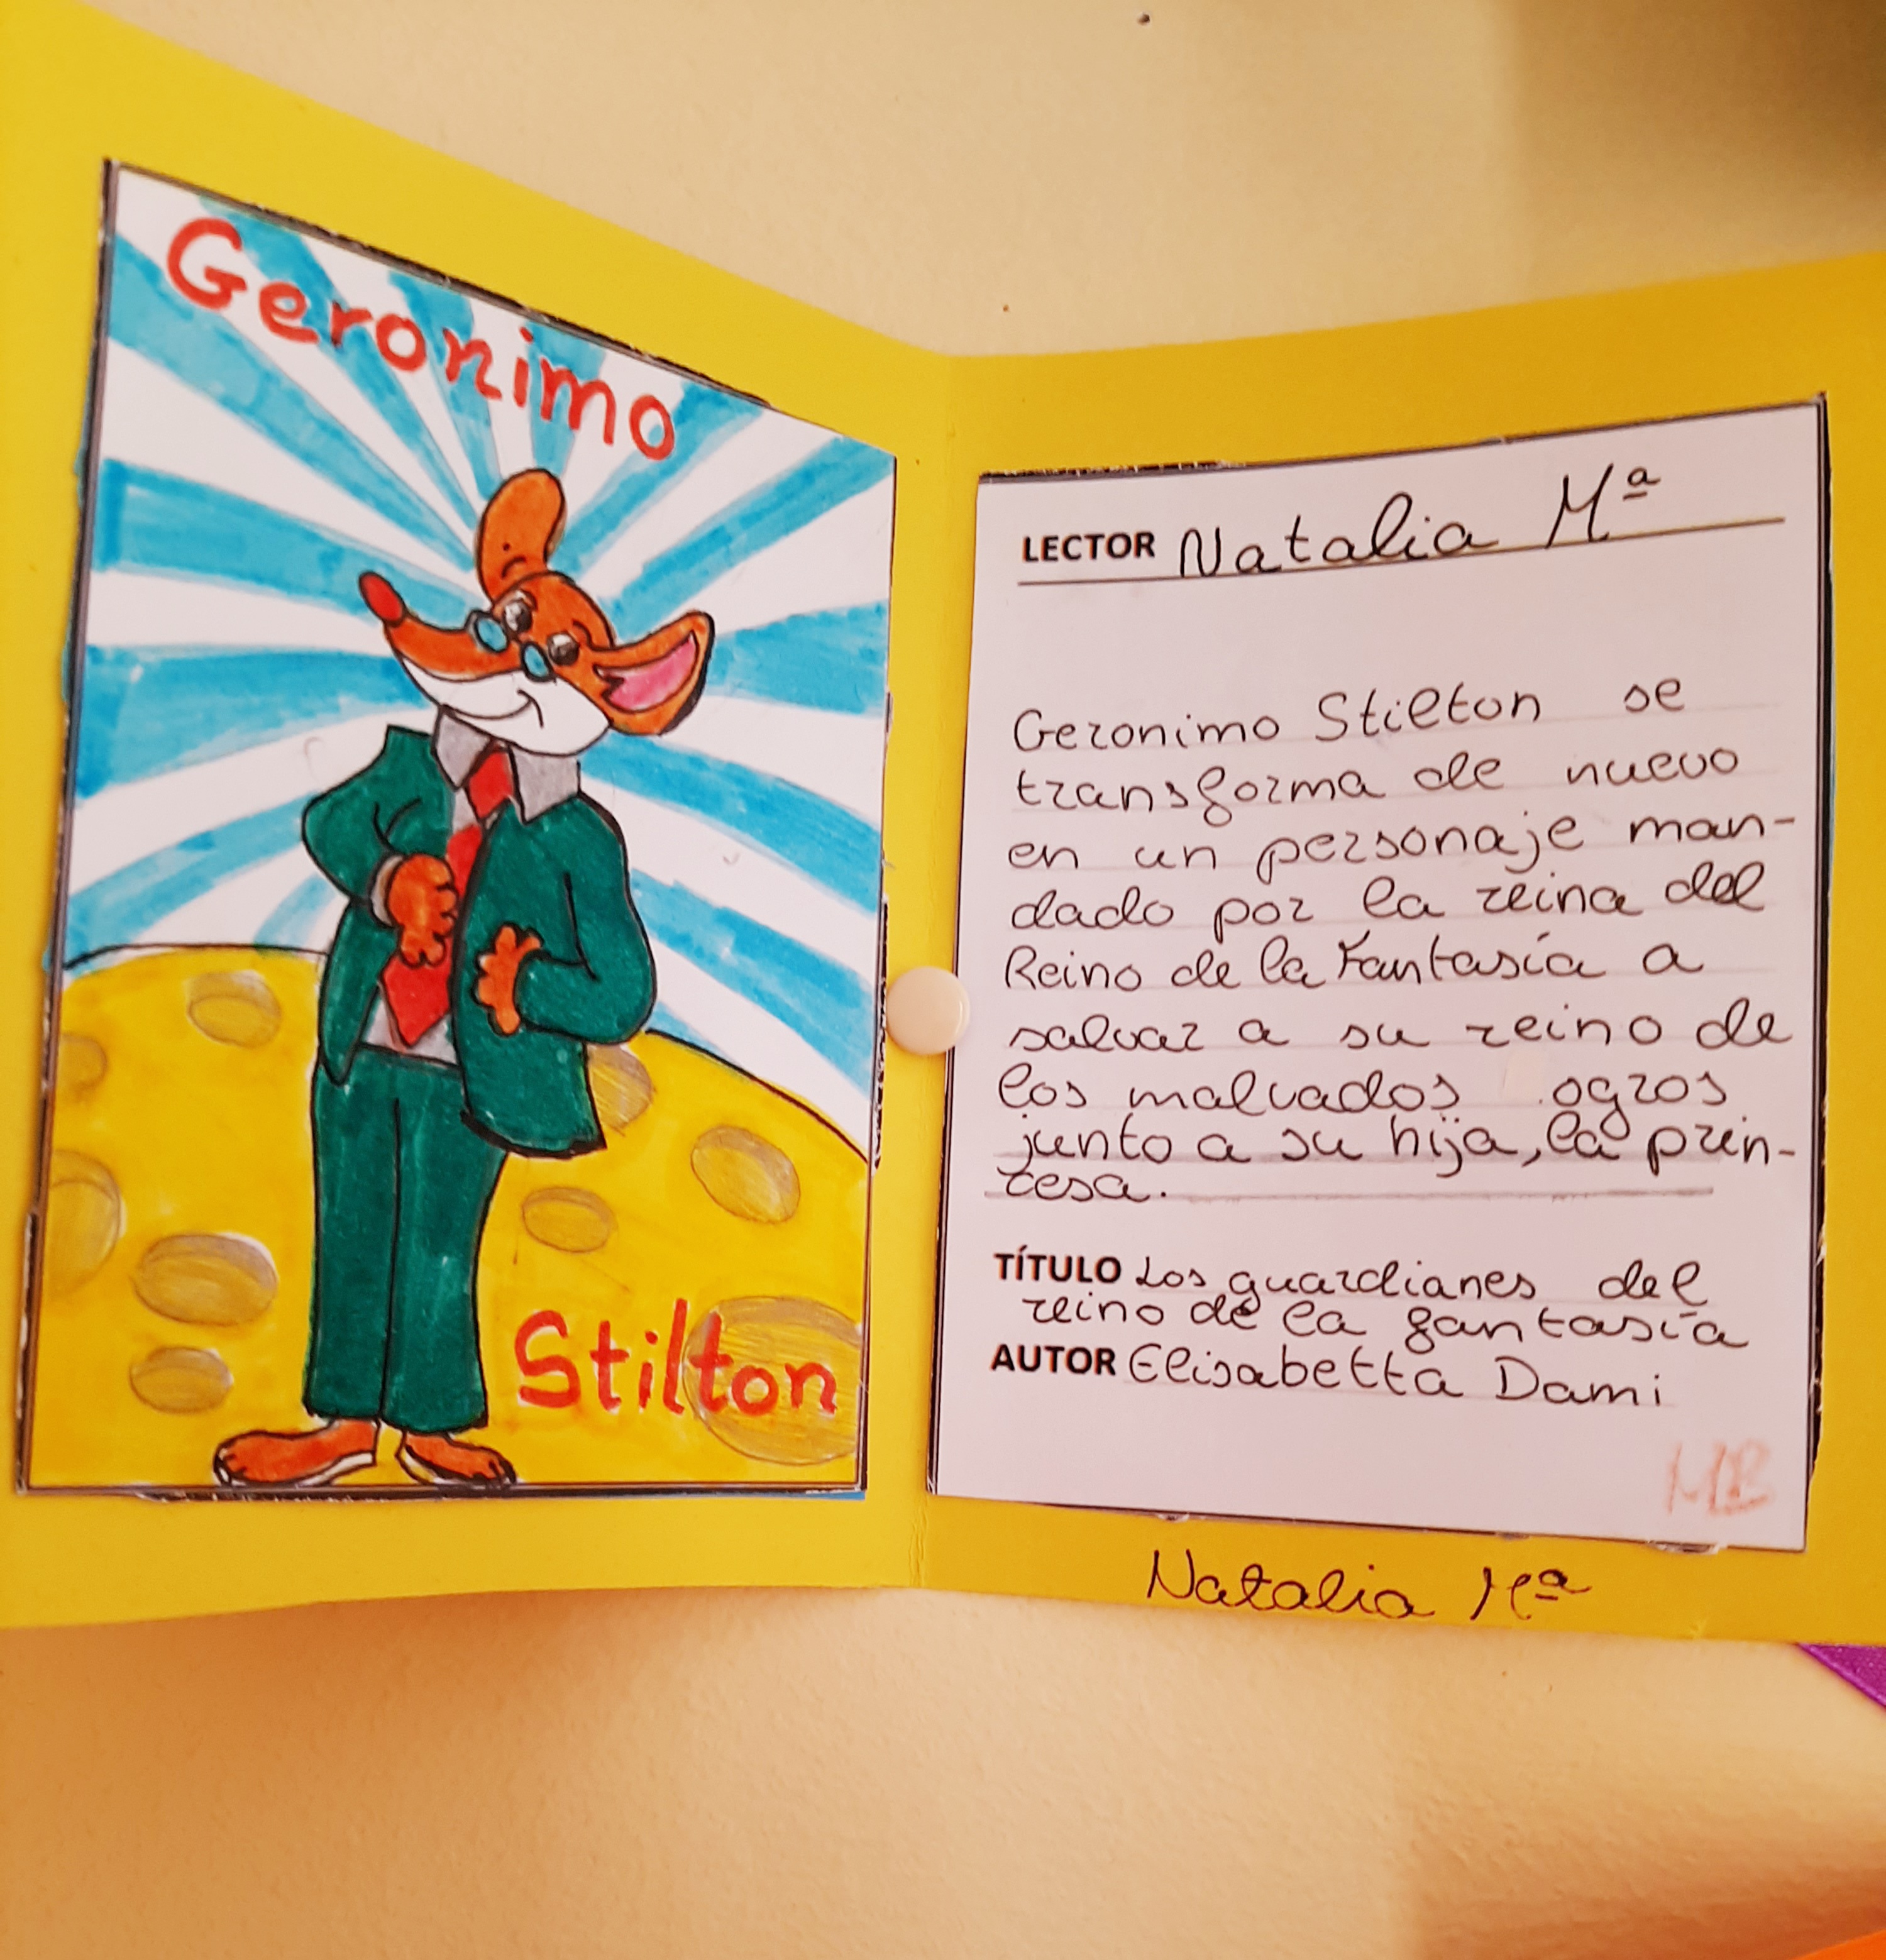 Geronimo
Stilton
LECTOR Natalia Mª
Geronimo Stilton se
transforma de nuevo
en un personaje man-
dado por la reina del
Reino de la Fantasía a
salvar a su reino de
los malvados ogros
junto a su hija, la prin-
cesa.
TÍTULO Los guardianes del
reino de la fantasía
AUTOR Elisabetta Dami
MB
Natalia Mª